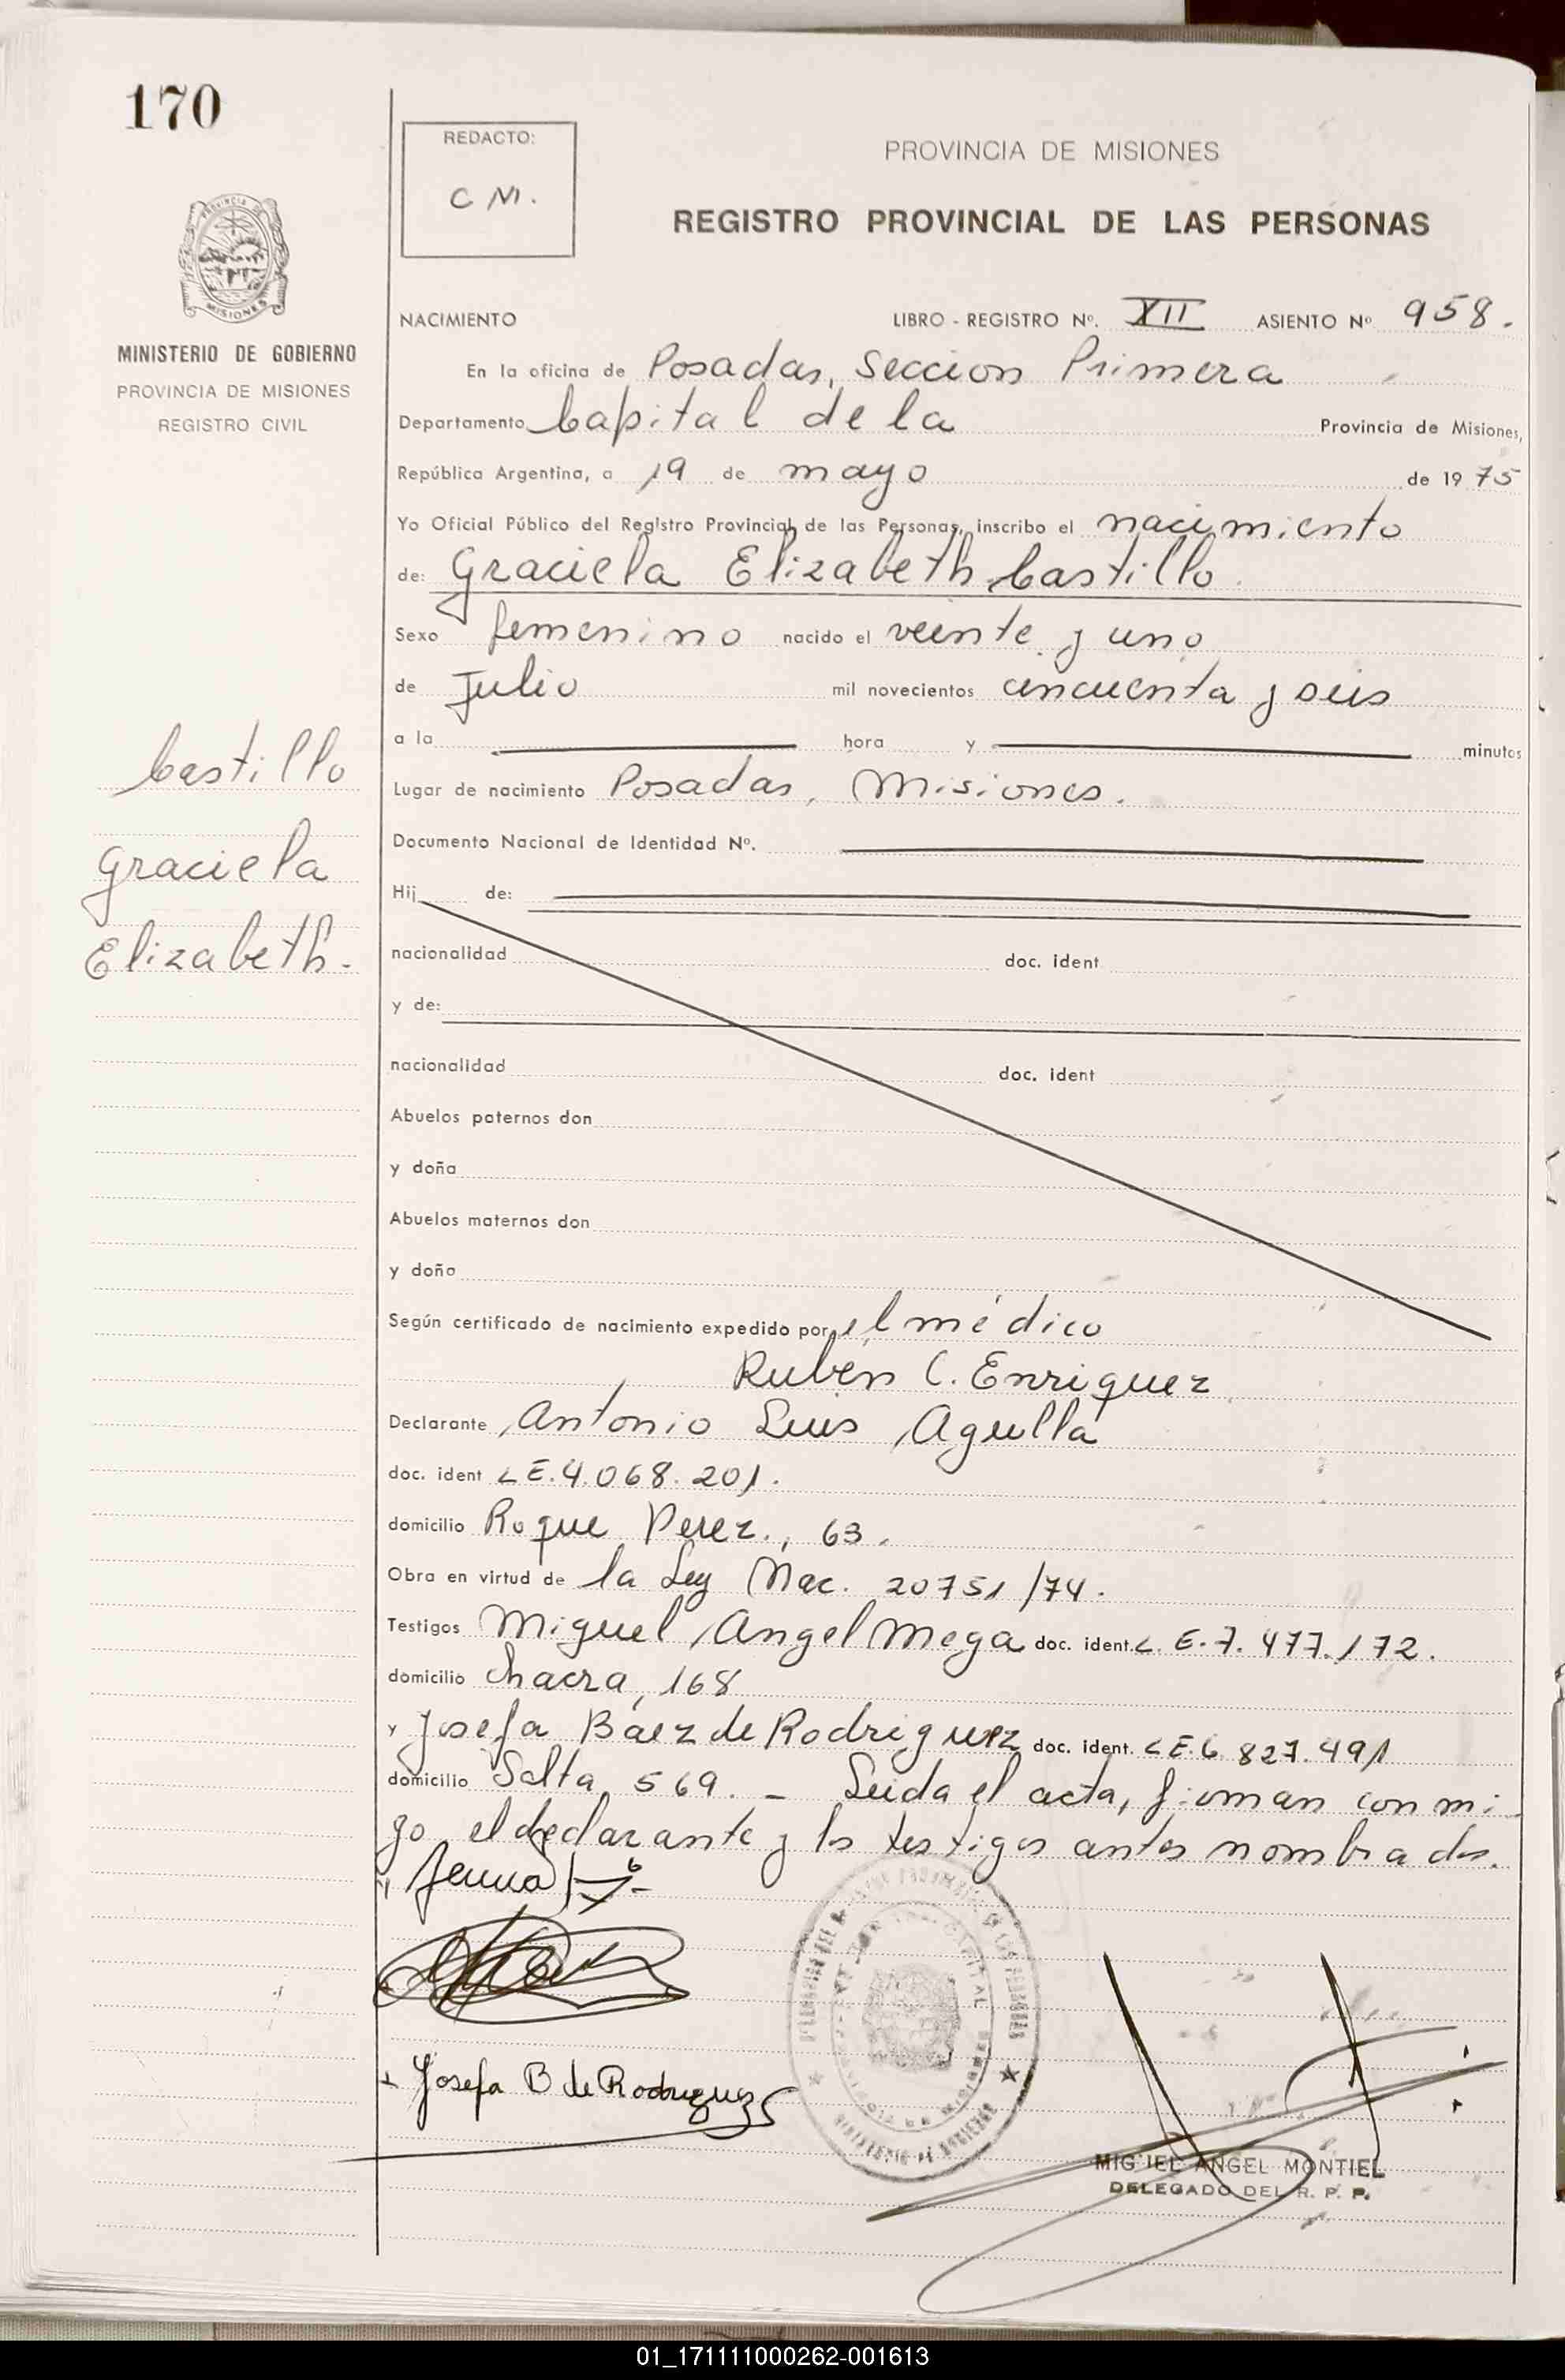 170
REDACTO:
C M.
PROVINCIA DE MISIONES
REGISTRO PROVINCIAL DE LAS PERSONAS
MISIONES
MINISTERIO DE GOBIERNO
PROVINCIA DE MISIONES
REGISTRO CIVIL
NACIMIENTO LIBRO - REGISTRO Nº. XII ASIENTO Nº 958.
En la oficina de Posadas, Seccion Primera
Departamento Capital de la Provincia de Misiones,
República Argentina, a 19 de mayo de 1975
Yo Oficial Público del Registro Provincial de las Personas, inscribo el nacimiento
de: Graciela Elizabeth Castillo.
Sexo femenino nacido el veinte y uno
de Julio mil novecientos cincuenta y seis
a la hora y minutos
Castillo
Graciela
Elizabeth.
Lugar de nacimiento Posadas, Misiones.
Documento Nacional de Identidad Nº.
Hij de:
nacionalidad doc. ident
y de:
nacionalidad doc. ident
Abuelos paternos don
y doña
Abuelos maternos don
y doña
Según certificado de nacimiento expedido por el médico
Rubén C. Enriquez
Declarante Antonio Luis Agulla
doc. ident L E. 4.068.201.
domicilio Roque Perez., 63.
Obra en virtud de la Ley Nac. 20751/74.
Testigos Miguel Angel Mega doc. ident. L. E. 7.477.172.
domicilio Chacra, 168
y Josefa Báez de Rodriguez doc. ident. L E. 6 827.491
domicilio Salta, 569. – Leida el acta, firman con mi
go el declarante y los testigos antes nombrados.
Josefa B de Rodriguez
MIGUEL ANGEL MONTIEL
DELEGADO DEL R. P. P.
01_171111000262-001613